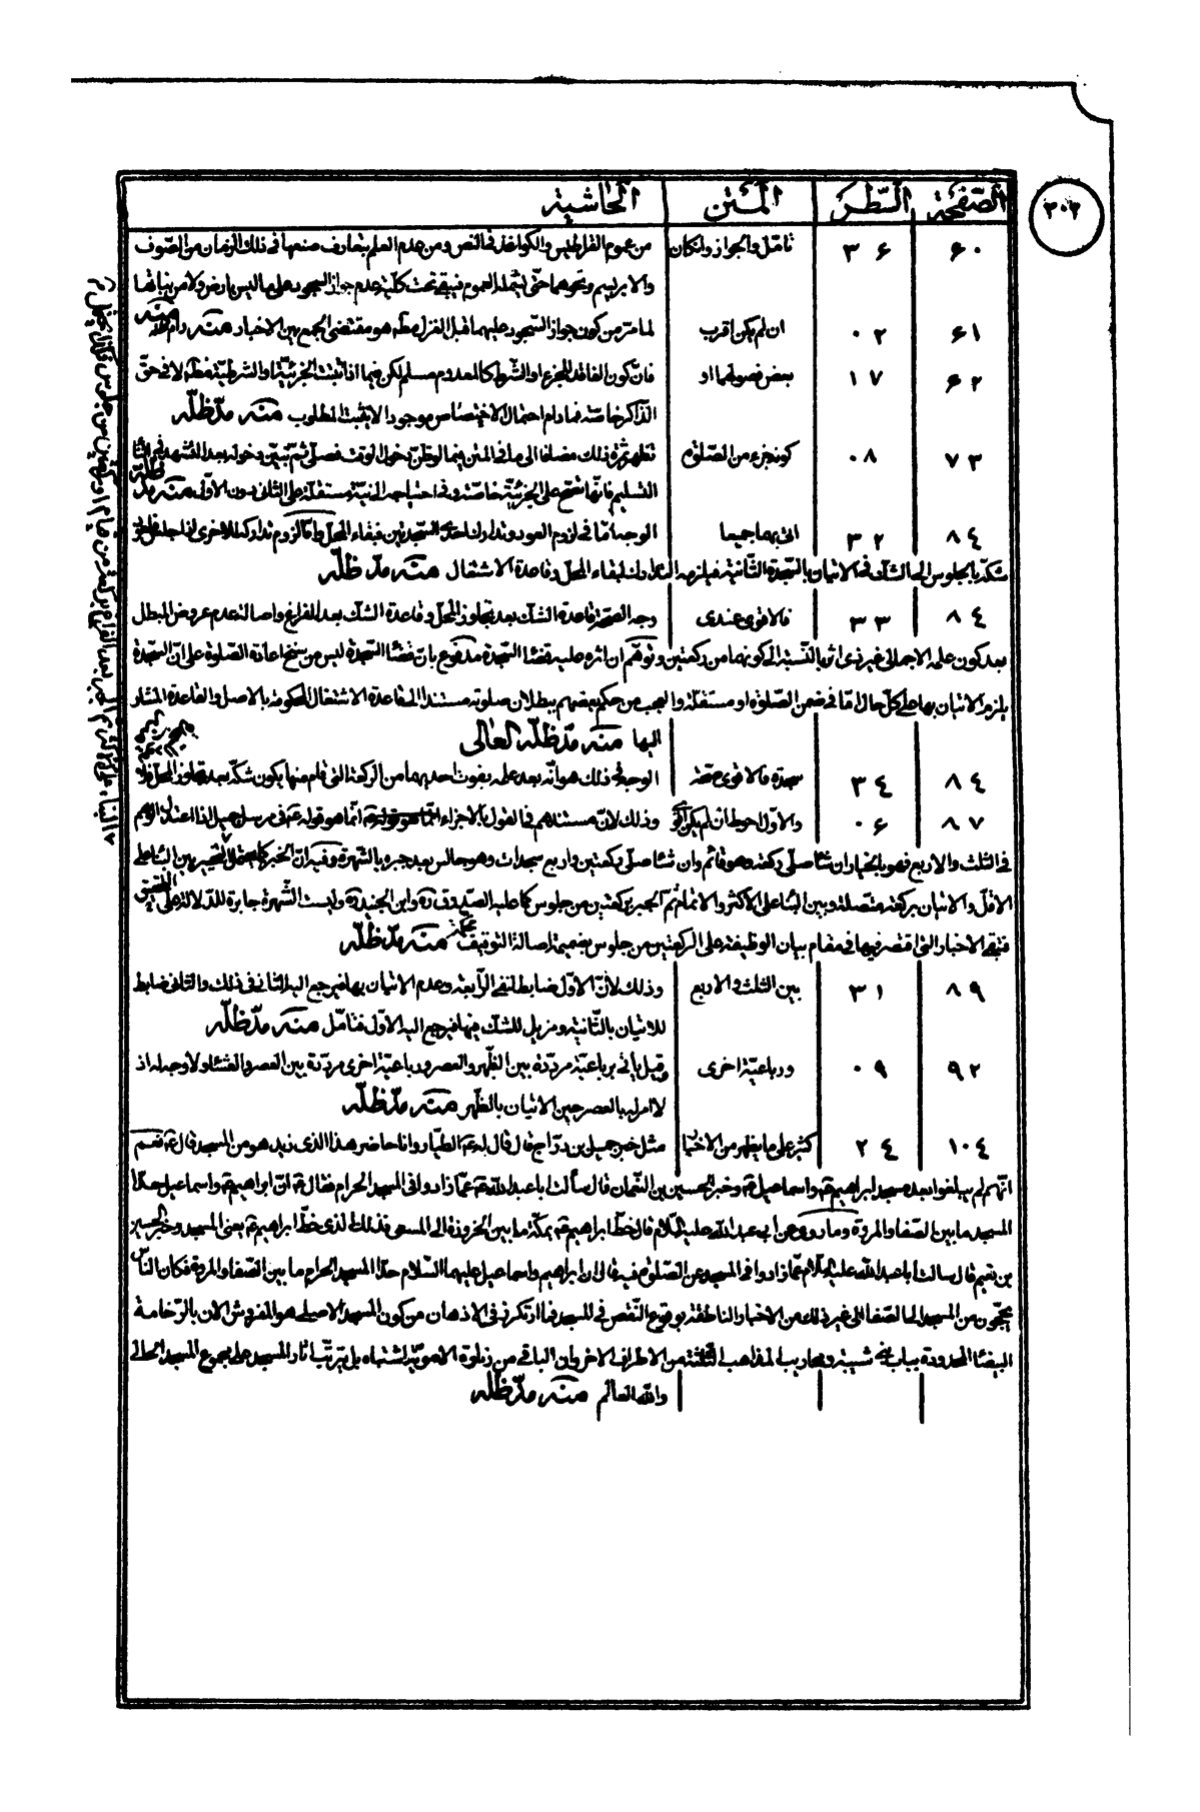 ٢٠٢
الصّفحة السّطر المتن الحاشية
۶٠ ٣۶ تامّل والجواز وانكان من عموم القراطيس والكواغذ فى النص ومن عدم العلم بتعارف صنعها فى ذلك الزمان من الصّوف
والابريسم ونحوهما حتّى يشمله العموم فيبقى تحت كلّية عدم جواز السجود على ما ليس بارض ولا من نباتها
۶١ ٠٢ ان لم يكن اقرب لما مرّ من كون جواز السّجود عليهما قبل الغزل مطلقا هو مقتضى الجمع بين الاخبار منه دام ظلّه
۶٢ ١٧ بعض فصولهما او فانّ كون الفاقد للجزء او الشّرط كالمعدوم مسلم لكن فيما اذا ثبتت الجزئيّة او الشرطيّة مطلقا لا فى حقّ
الذّاكر خاصّة فما دام احتمال الاختصاص موجودا لا يثبت المطلوب منه مدّ ظلّه
٧٣ ٠٨ كونه جزء من الصّلوة تظهر ثمرة ذلك مضافا الى ما فى المتن فيما لو ظنّ دخول الوقت فصلّى ثمّ تبيّن دخوله بعد التشهد قبل
التسليم فانّها تصح على الجزئيّة خاصّة وفى احتياجه الى نيّة مستقلّة على الثانى دون الاوّل منه مدّ ظلّه
٨٤ ٣٢ اتى بهما جميعا الوجه امّا فى لزوم العود وتدارك احدى السّجدتين فبقاء المحلّ وامّا لزوم تدارك الاخرى
شكّه بالجلوس الى الشكّ فى الاتيان بالسّجدة الثّانية فيلزمه التدارك لبقاء المحلّ وقاعدة الاشتغال منه مدّ ظلّه
٨٤ ٣٣ فالاقوى عندى وجه الصّحة قاعدة الشك بعد تجاوز المحلّ وقاعدة الشك بعد الفراغ واصالة عدم عروض المبطل
بعد كون علمه الاجمالى غير ذى اثر بالنّسبة الى كونهما من ركعتين وتوهّم ان اثره عليه قضاء السّجدة مدفوع بانّ قضاء السّجدة ليس من سنخ اعادة الصّلوة على انّ السّجدة
يلزم الاتيان بها على كلّ حال امّا فى ضمن الصّلوة او مستقلّة والعجب من حكم بعضهم ببطلان صلوته مستندا الى قاعدة الاشتغال المحكومة بالاصل والقاعدة المشار
اليها منه مدّ ظلّه العالى
٨٤ ٣٤ سجدة فالاقوى صحّة الوجه فى ذلك هو انّه بعد علمه بفوت احديهما من الركعة التى قام منها يكون شكّه بعد تجاوز المحلّ
٨٧ ٠۶ والاوّل احوط ان لم يكن اقوى وذلك لانّ مستندهم فى القول بالاجزاء انّما هو قوله ع فى مرسل جميل اذا اعتدل الوهم
فى الثلث والاربع فهو بالخيار ان شاء صلّى ركعة وهو قائم وان شاء صلّى ركعتين واربع سجدات وهو جالس بعد جبره بالشهرة وفيه انّ الخبر كما يحتمل التخيير بين البناء على
الاقلّ والاتيان بركعة متصلة وبين البناء على الاكثر والاتمام ثمّ الجبر بركعتين من جلوس كما عليه الصّدوق ره وابن الجنيد ره وليست الشّهرة جابرة للدّلالة على التحقيق
فتبقى الاخبار التى اقتصر فيها فى مقام بيان الوظيفة على الركعتين من جلوس بضميمة اصالة التوقيف محكمة منه مدّ ظلّه
٨٩ ٣١ بين الثلث والاربع وذلك لانّ الاوّل ضابط لنفى الرّابعة وعدم الاتيان بها فيرجع اليه الثانى فى ذلك والثانى ضابط
للاتيان بالثّانية ومزيل للشك فيها فيرجع اليه الاوّل فتامّل منه مدّ ظلّه
٩٢ ٠٩ ورباعيّة اخرى وقيل يأتى برباعيّة مردّدة بين الظّهر والعصر ورباعيّة اخرى مردّدة بين العصر والعشاء ولا وجه له اذ
لا امر له بالعصر حين الاتيان بالظّهر منه مدّ ظلّه
١٠٤ ٢٤ كثير على ما يظهر من الاخبار مثل خبر جميل بن درّاج قال قال له ع الطيّار وانا حاضر هذا الذى زيد هو من المسجد قال ع نعم
انّهم لم يبلغوا بعد مسجد ابراهيم ع واسماعيل ع وخبر الحسين بن النّعمان قال سألت ابا عبد اللّه ع عمّا زادوا فى المسجد الحرام فقال ع انّ ابراهيم ع واسماعيل حدّا
المسجد ما بين الصّفا والمروة وما روى عن ابى عبد اللّه عليه السّلام قال خطّ ابراهيم ع بمكّة ما بين الحزورة الى المسعى فذلك الذى خطّ ابراهيم ع يعنى المسجد وخبر الحسين
بن نعيم قال سالت ابا عبد اللّه عليه السّلام عمّا زادوا فى المسجد عن الصّلوة فيه قال انّ ابراهيم واسماعيل عليهما السّلام حدّا المسجد الحرام ما بين الصّفا والمروة فكان النّاس
يحجّون من المسجد الى الصّفا الى غير ذلك من الاخبار الناطقة بوقوع النّقص فى المسجد فما ارتكز فى الاذهان من كون المسجد الاصيلى هو المفروش الان بالرّخامة
البيضاء المحدودة بباب بنى شيبة ومحاريب المذاهب الثلثة من الاطراف الاخر وانّ الباقى من زيادة الامويّة اشتباه بل يترتّب اثار المسجد على مجموع المسجد الحالى
واللّه العالم منه مدّ ظلّه